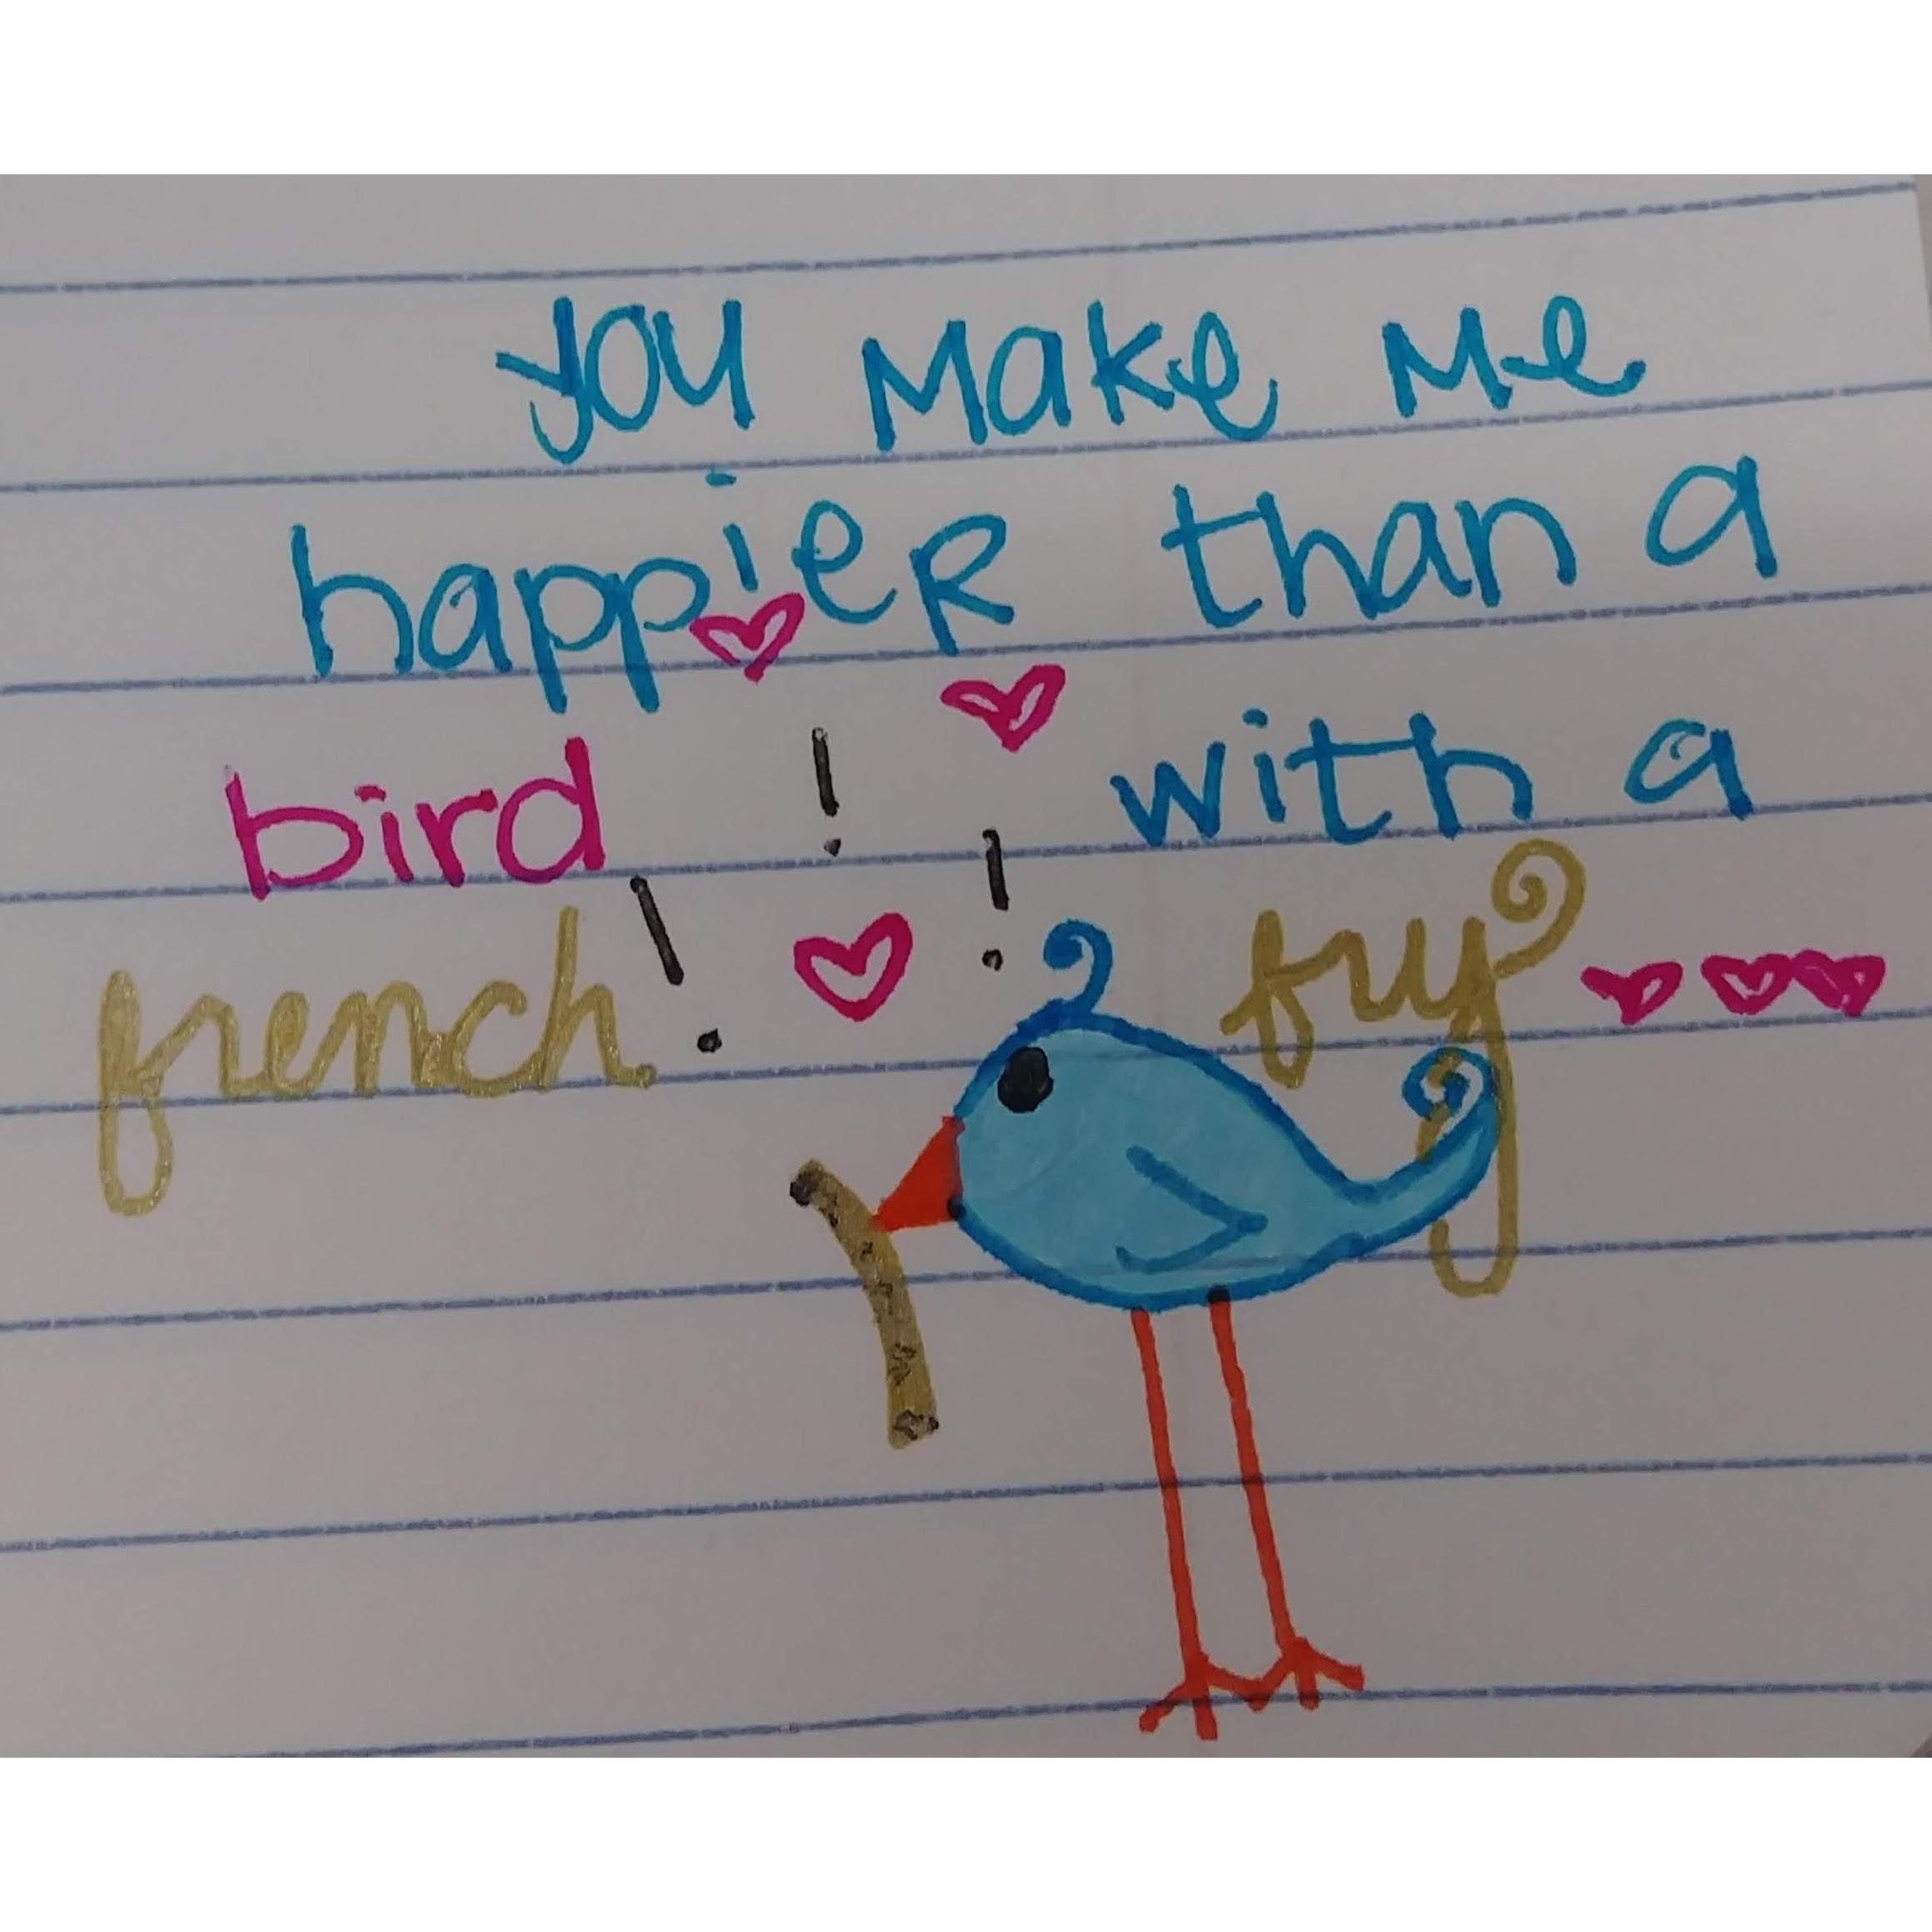 you make me
happier than a
bird ! with a
french ! ! fry